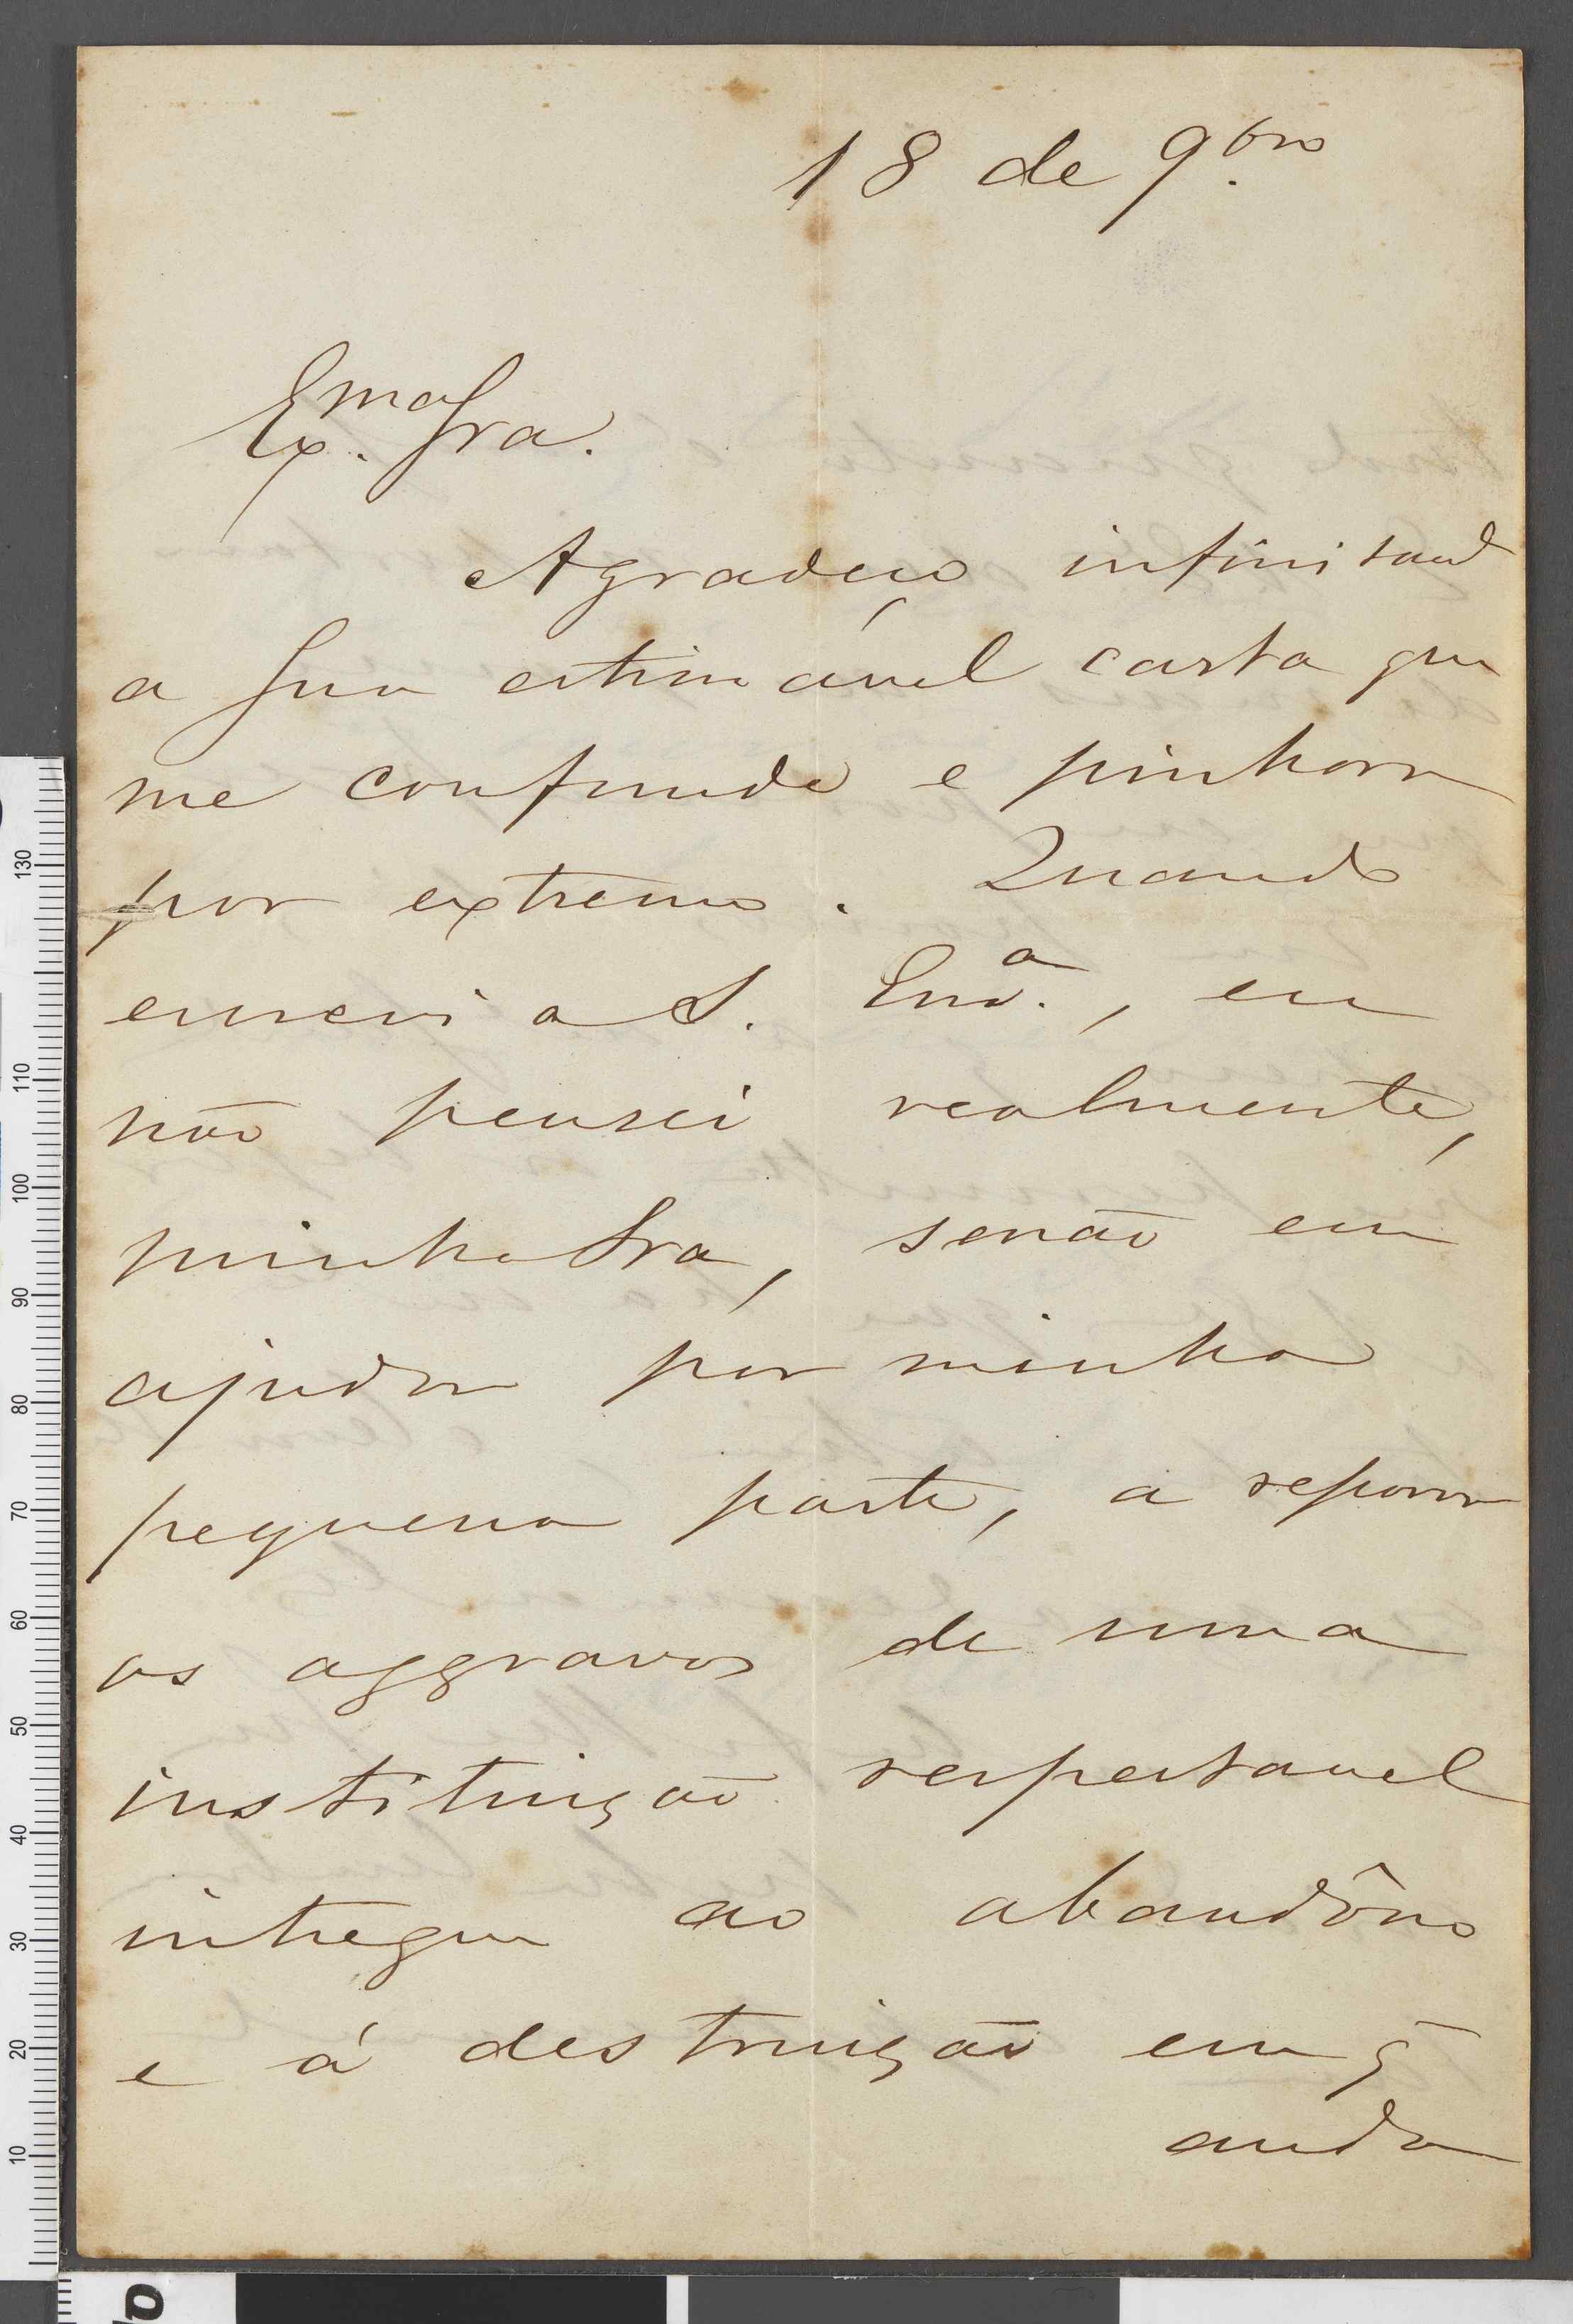 18 de 9.bro
Ex.ma Sra.
Agradeço infinitamte
a Sua estimavel carta que
me confunde e pinhora
por extremo. Quando
escrevi a S. Exa., eu
não pensei realmente,
minha Sra, senão em
ajudar por minha
pequena parte, a reparar
os aggravos de uma
instituição respeitavel
intregue ao abandôno
e á destruição em q̃
anda
130
110
100
90
80
70
60
50
40
30
20
10